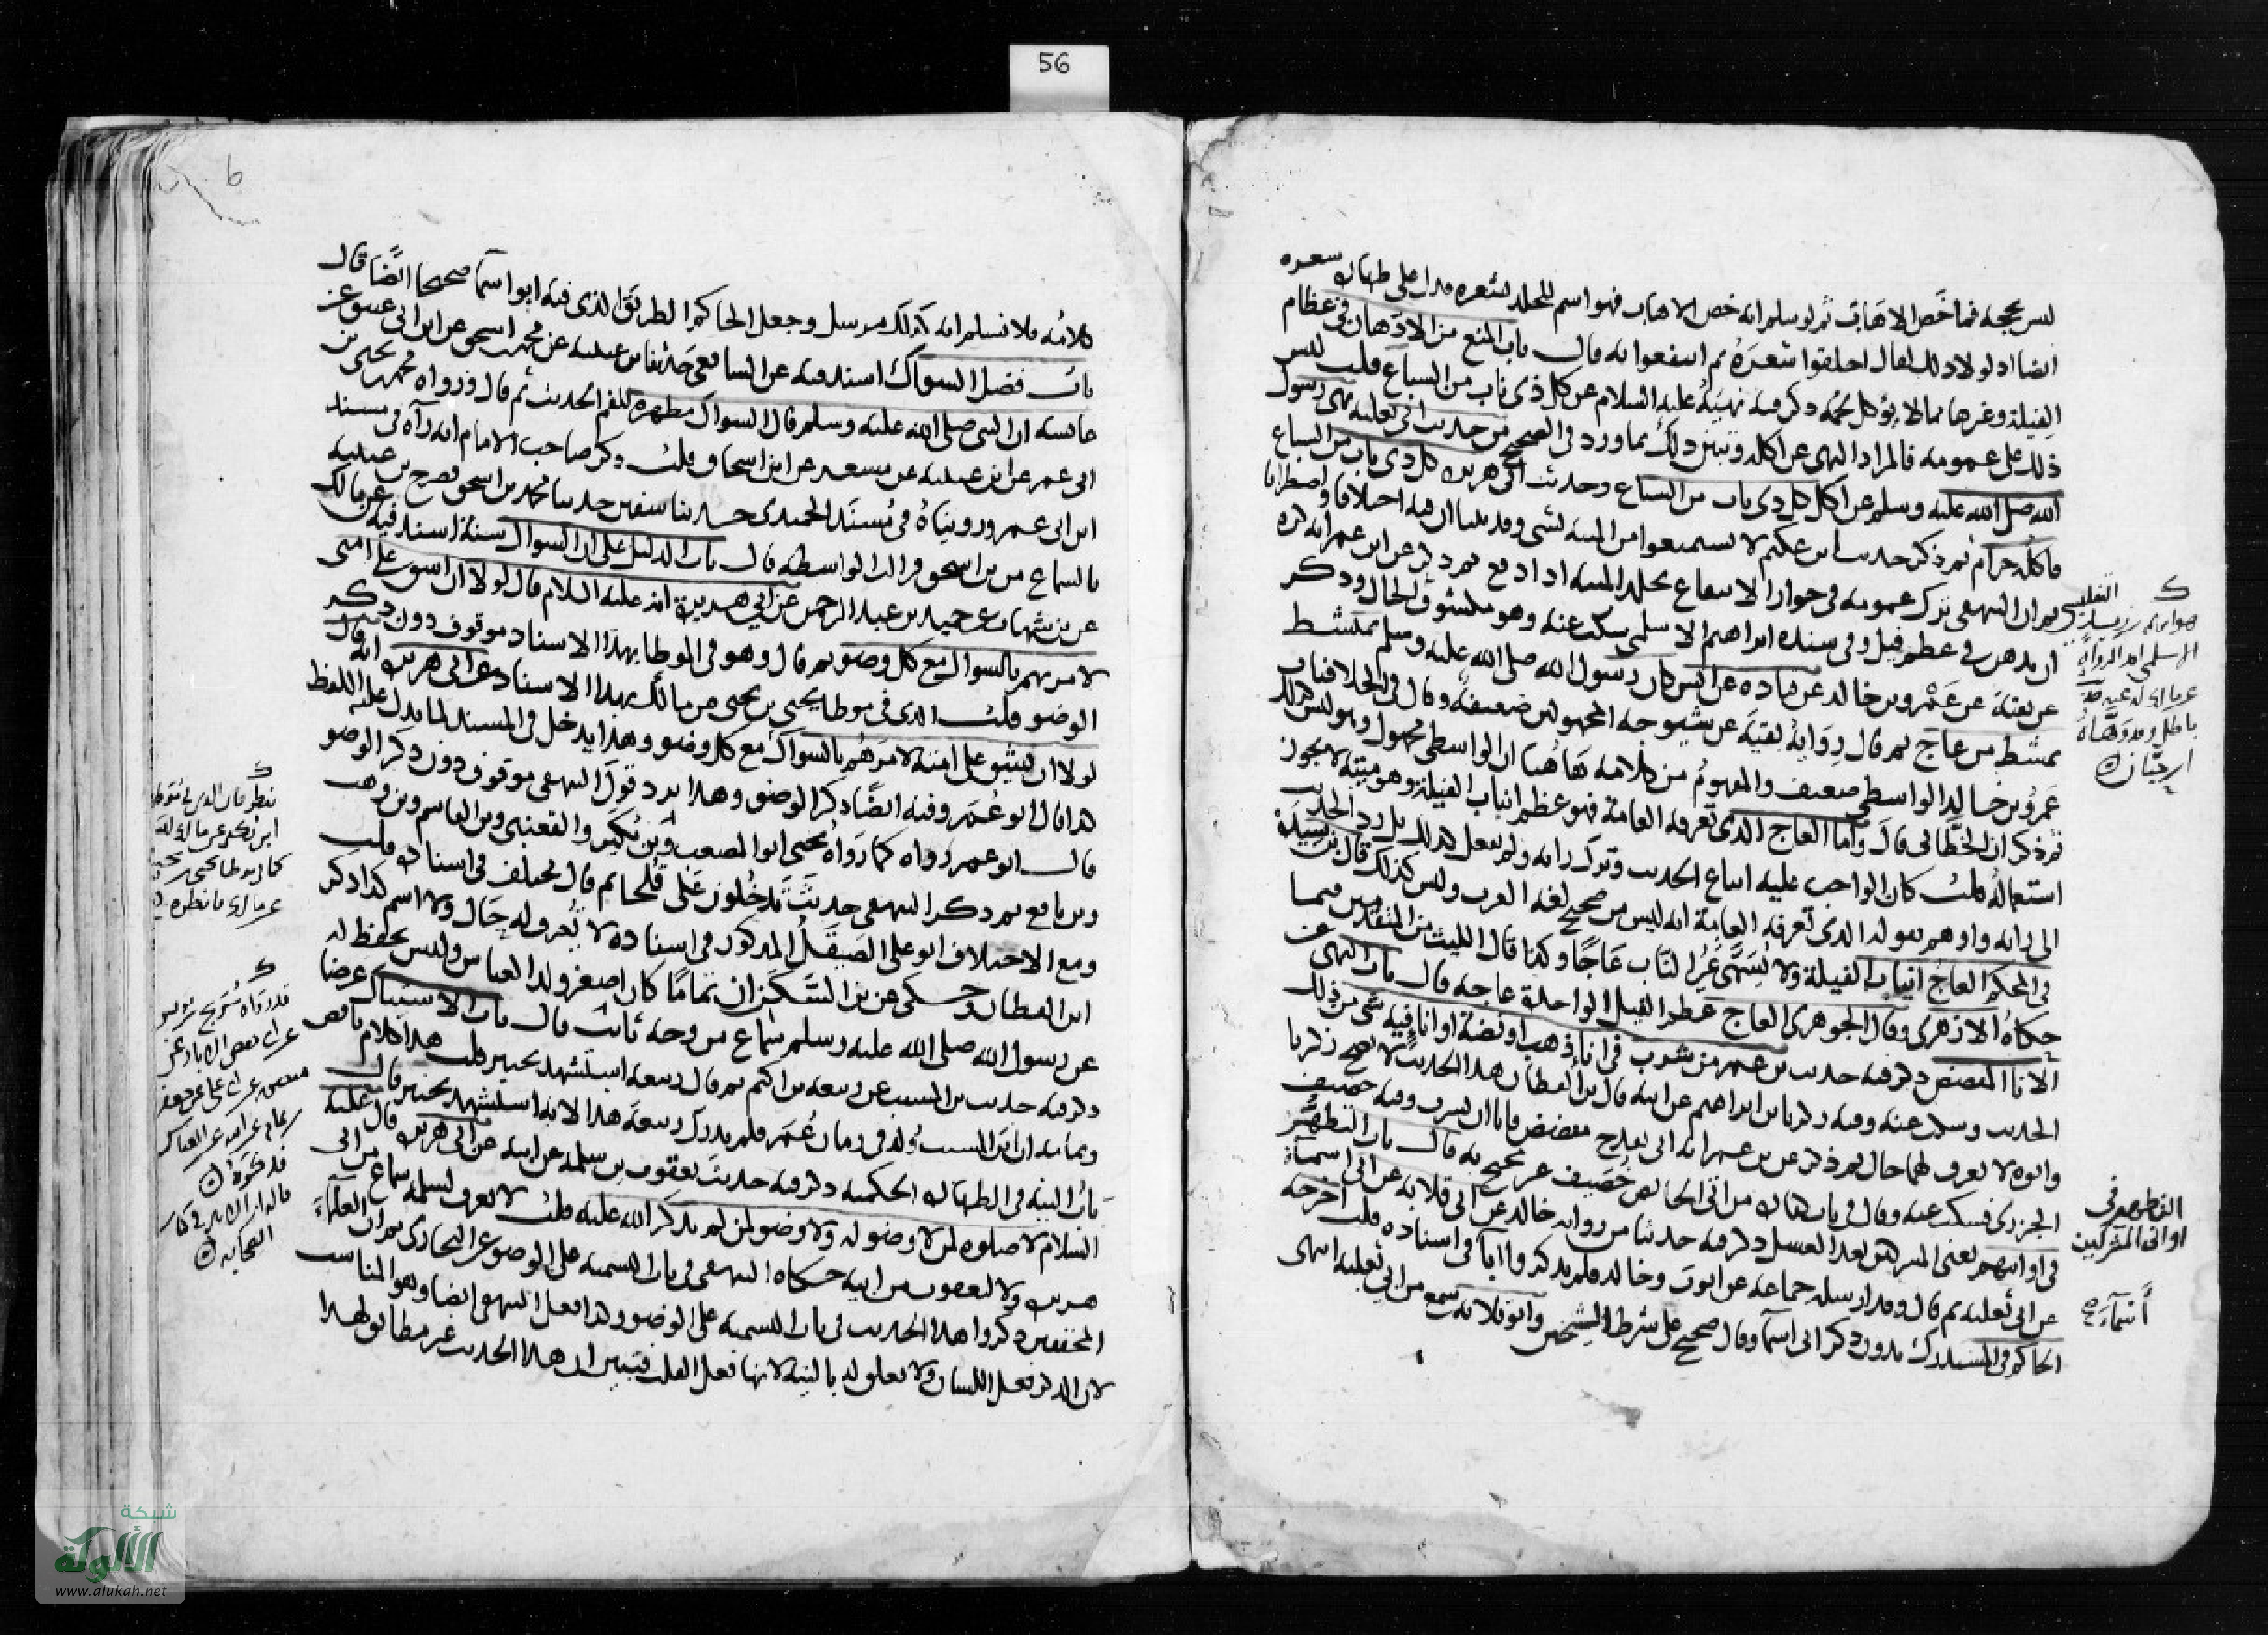 56
ليس بحجة فما خص الاهاب ثم لو سلم انه خص الاهاب فهو اسم للجلد بشعره فدل على طهارة شعره
ايضا اذ لولا ذلك لقال احلقوا شعره ثم انتفعوا به قال باب المنع من الادهان في عظام
الفيلة وغيرها مما لا يؤكل لحمه ذكر فيه نهيه عليه السلام عن كل ذي ناب من السباع قلت ليس
ذلك على عمومه فالمراد النهي عن اكله وتبين ذلك بما ورد في الصحيح من حديث ابي ثعلبة نهى رسول
الله صلى الله عليه وسلم عن اكل كل ذي ناب من السباع وحديث ابي هريرة كل ذي ناب من السباع
فاكله حرام ثم ذكر حديث ابن عكيم لا تستمتعوا من الميتة بشي وقد بينا ان فيه اختلافا واضطرابا
ثم ان البيهقي ترك عمومه في جواز الانتفاع بجلد الميتة اذا دبغ ثم ذكر عن ابن عمر انه كره
ان يدهن في عظم فيل وفي سنده ابراهيم الاسلمي سكت عنه وهو مكشوف الحال وذكر
عن بقية عن عمرو بن خالد عن قتادة عن انس كان رسول الله صلى الله عليه وسلم يمتشط
بمشط من عاج ثم قال رواية بقية عن شيوخه المجهولين ضعيفة وقال في الخلافيات
عمرو بن خالد الواسطي ضعيف والمفهوم من كلامه هاهنا ان الواسطي مجهول وليس كذلك
ثم ذكر ان الخطابي قال واما العاج الذي تعرفه العامة فهو عظم انياب الفيلة وهو ميتة لا يجوز
استعماله قلت كان الواجب عليه اتباع الحديث وترك رايه ولم يفعل كذلك بل رد الحديث
الى رايه واوهم بقوله الذي تعرفه العامة انه ليس من صحيح لغة العرب وليس كذلك قال بن سيده
في المحكم العاج انياب الفيلة ولا يسمى غير الناب عاجا وكذا قال الليث من المتقدمين فيما
حكاه الازهري وقال الجوهري العاج عظم الفيل الواحدة عاجة قال باب النهي عن
الاناء المفضض ذكر فيه حديث بن عمر من شرب في انا ذهب او فضة او انا فيه شي من ذلك
الحديث وسكت عنه وفيه زكريا بن ابراهيم عن ابيه قال بن القطان هذا الحديث لا يصح زكريا
وابوه لا يعرف لهما حال ثم ذكر عن بن عمر انه اتى بقدح مفضض فابى ان يشرب وفيه خصيف
الجزري فسكت عنه وقال في باب خصيف غير محتج به قال باب التطهر
في اوانيهم يعني المشركين بعد الغسل ذكر فيه حديثا من رواية خالد عن ابي قلابة عن ابي اسماء
عن ابي ثعلبة ثم قال وقد ارسله جماعة عن ايوب وخالد فلم يذكروا ابا اسماء في اسناده قلت اخرجه
الحاكم في المستدرك بدون ذكر ابي اسماء وقال صحيح على شرط الشيخين وابو قلابة سمع من ابي ثعلبة انتهى
هو ابراهيم
باطل
ابن حبان
التطهر في
اواني المشركين
اسماء
6
كلامه فلا نسلم انه كذلك مرسل وجعل الحاكم الطريق الذي فيه ابو اسما صحيحا ايضا قال
باب فضل السواك اسند فيه عن الشافعي حدثنا بن عيينة عن محمد بن اسحق عن ابن ابي عتيق عن
عائشة ان النبي صلى الله عليه وسلم قال السواك مطهرة للفم الحديث ثم قال ورواه محمد بن يحيى بن
ابي عمر عن ابن عيينة عن مسعر عن ابن اسحاق قلت ذكر صاحب الامام انه رآه في مسند
ابن ابي عمر ورويناه في مسند الحميدي حدثنا سفين حدثنا محمد بن اسحق فصرح بن عيينة
بالسماع من بن اسحق فزالت الواسطة قال باب الدليل على ان السواك سنة اسند فيه عن مالك
عن بن شهاب عن حميد بن عبد الرحمن عن ابي هريرة انه عليه السلام قال لولا ان اشق على امتي
لامرتهم بالسواك مع كل وضو ثم قال وهو في الموطا بهذا الاسناد موقوف دون ذكر
الوضو قلت الذي في موطا يحيى بن يحيى عن مالك بهذا الاسناد عن ابي هريرة انه قال
لولا ان يشق على امته لامرهم بالسواك مع كل وضو وهذا يدخل في المسند لما يدل عليه اللفظ
كذا قال ابو عمر وفيه ايضا ذكر الوضو وهذا يرد قول البيهقي موقوف دون ذكر الوضو
قال ابو عمر رواه كما رواه يحيى ابو المصعب وبن بكير والقعنبي وبن القاسم وبن وهب
وبن نافع ثم ذكر البيهقي حديث تدخلون على قلحا ثم قال مختلف في اسناده قلت
ومع الاختلاف ابو علي الصيقل المذكور في اسناده لا يعرف له حال ولا اسم كذا ذكر
ابن القطان وحكى عن بن السكن ان تماما كان اصغر ولد العباس وليس يحفظ له
عن رسول الله صلى الله عليه وسلم سماع من وجه ثابت قال باب الاستياك عرضا
ذكر فيه حديث بن المسيب عن ربيعة بن اكثم ثم قال ربيعة استشهد بخيبر قلت هذا كلام ناقص
وتمامه ان ابن المسيب ولد في زمان عمر فلم يدرك ربيعة هذا لانه استشهد بخيبر قال
باب النية في الطهارة الحكمية ذكر فيه حديث يعقوب بن سلمة عن ابيه عن ابي هريرة قال عليه
السلام لا صلوة لمن لا وضو له ولا وضو لمن لم يذكر الله عليه قلت لا يعرف لسلمة سماع من ابي
هريرة ولا ليعقوب من ابيه حكاه البيهقي في باب التسمية على الوضو عن البخاري ثم ان العلماء
المحققين ذكروا هذا الحديث في باب التسمية على الوضو وكذا فعل البيهقي ايضا وهو المناسب
لان الذكر فعل اللسان ولا تعلق له بالنية لانها فعل القلب فتبين ان هذا الحديث غير مطابق لهذا
قد رواه
قد ذكره
الصحابة
شبكة
الألوكة
www.alukah.net